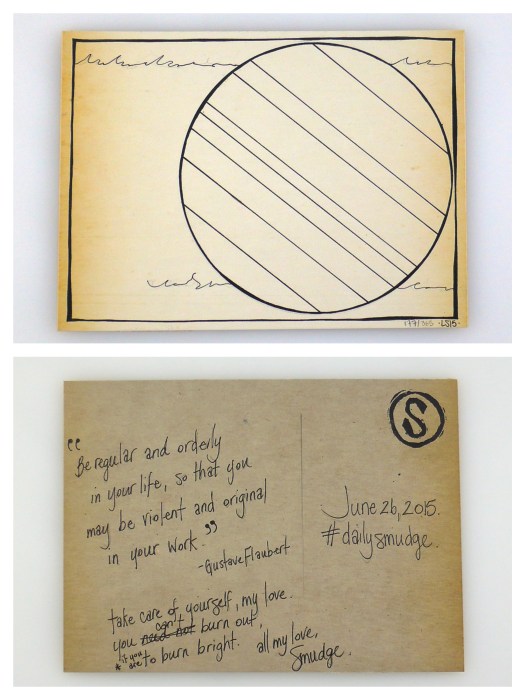 177/365 ·LS15·
S
"Be regular and orderly
in your life, so that you
may be violent and original
in your work."
-Gustave Flaubert
take care of yourself, my love.
you can't burn out,
*if you are to burn bright.
all my love,
Smudge.
June 26, 2015.
#dailysmudge.